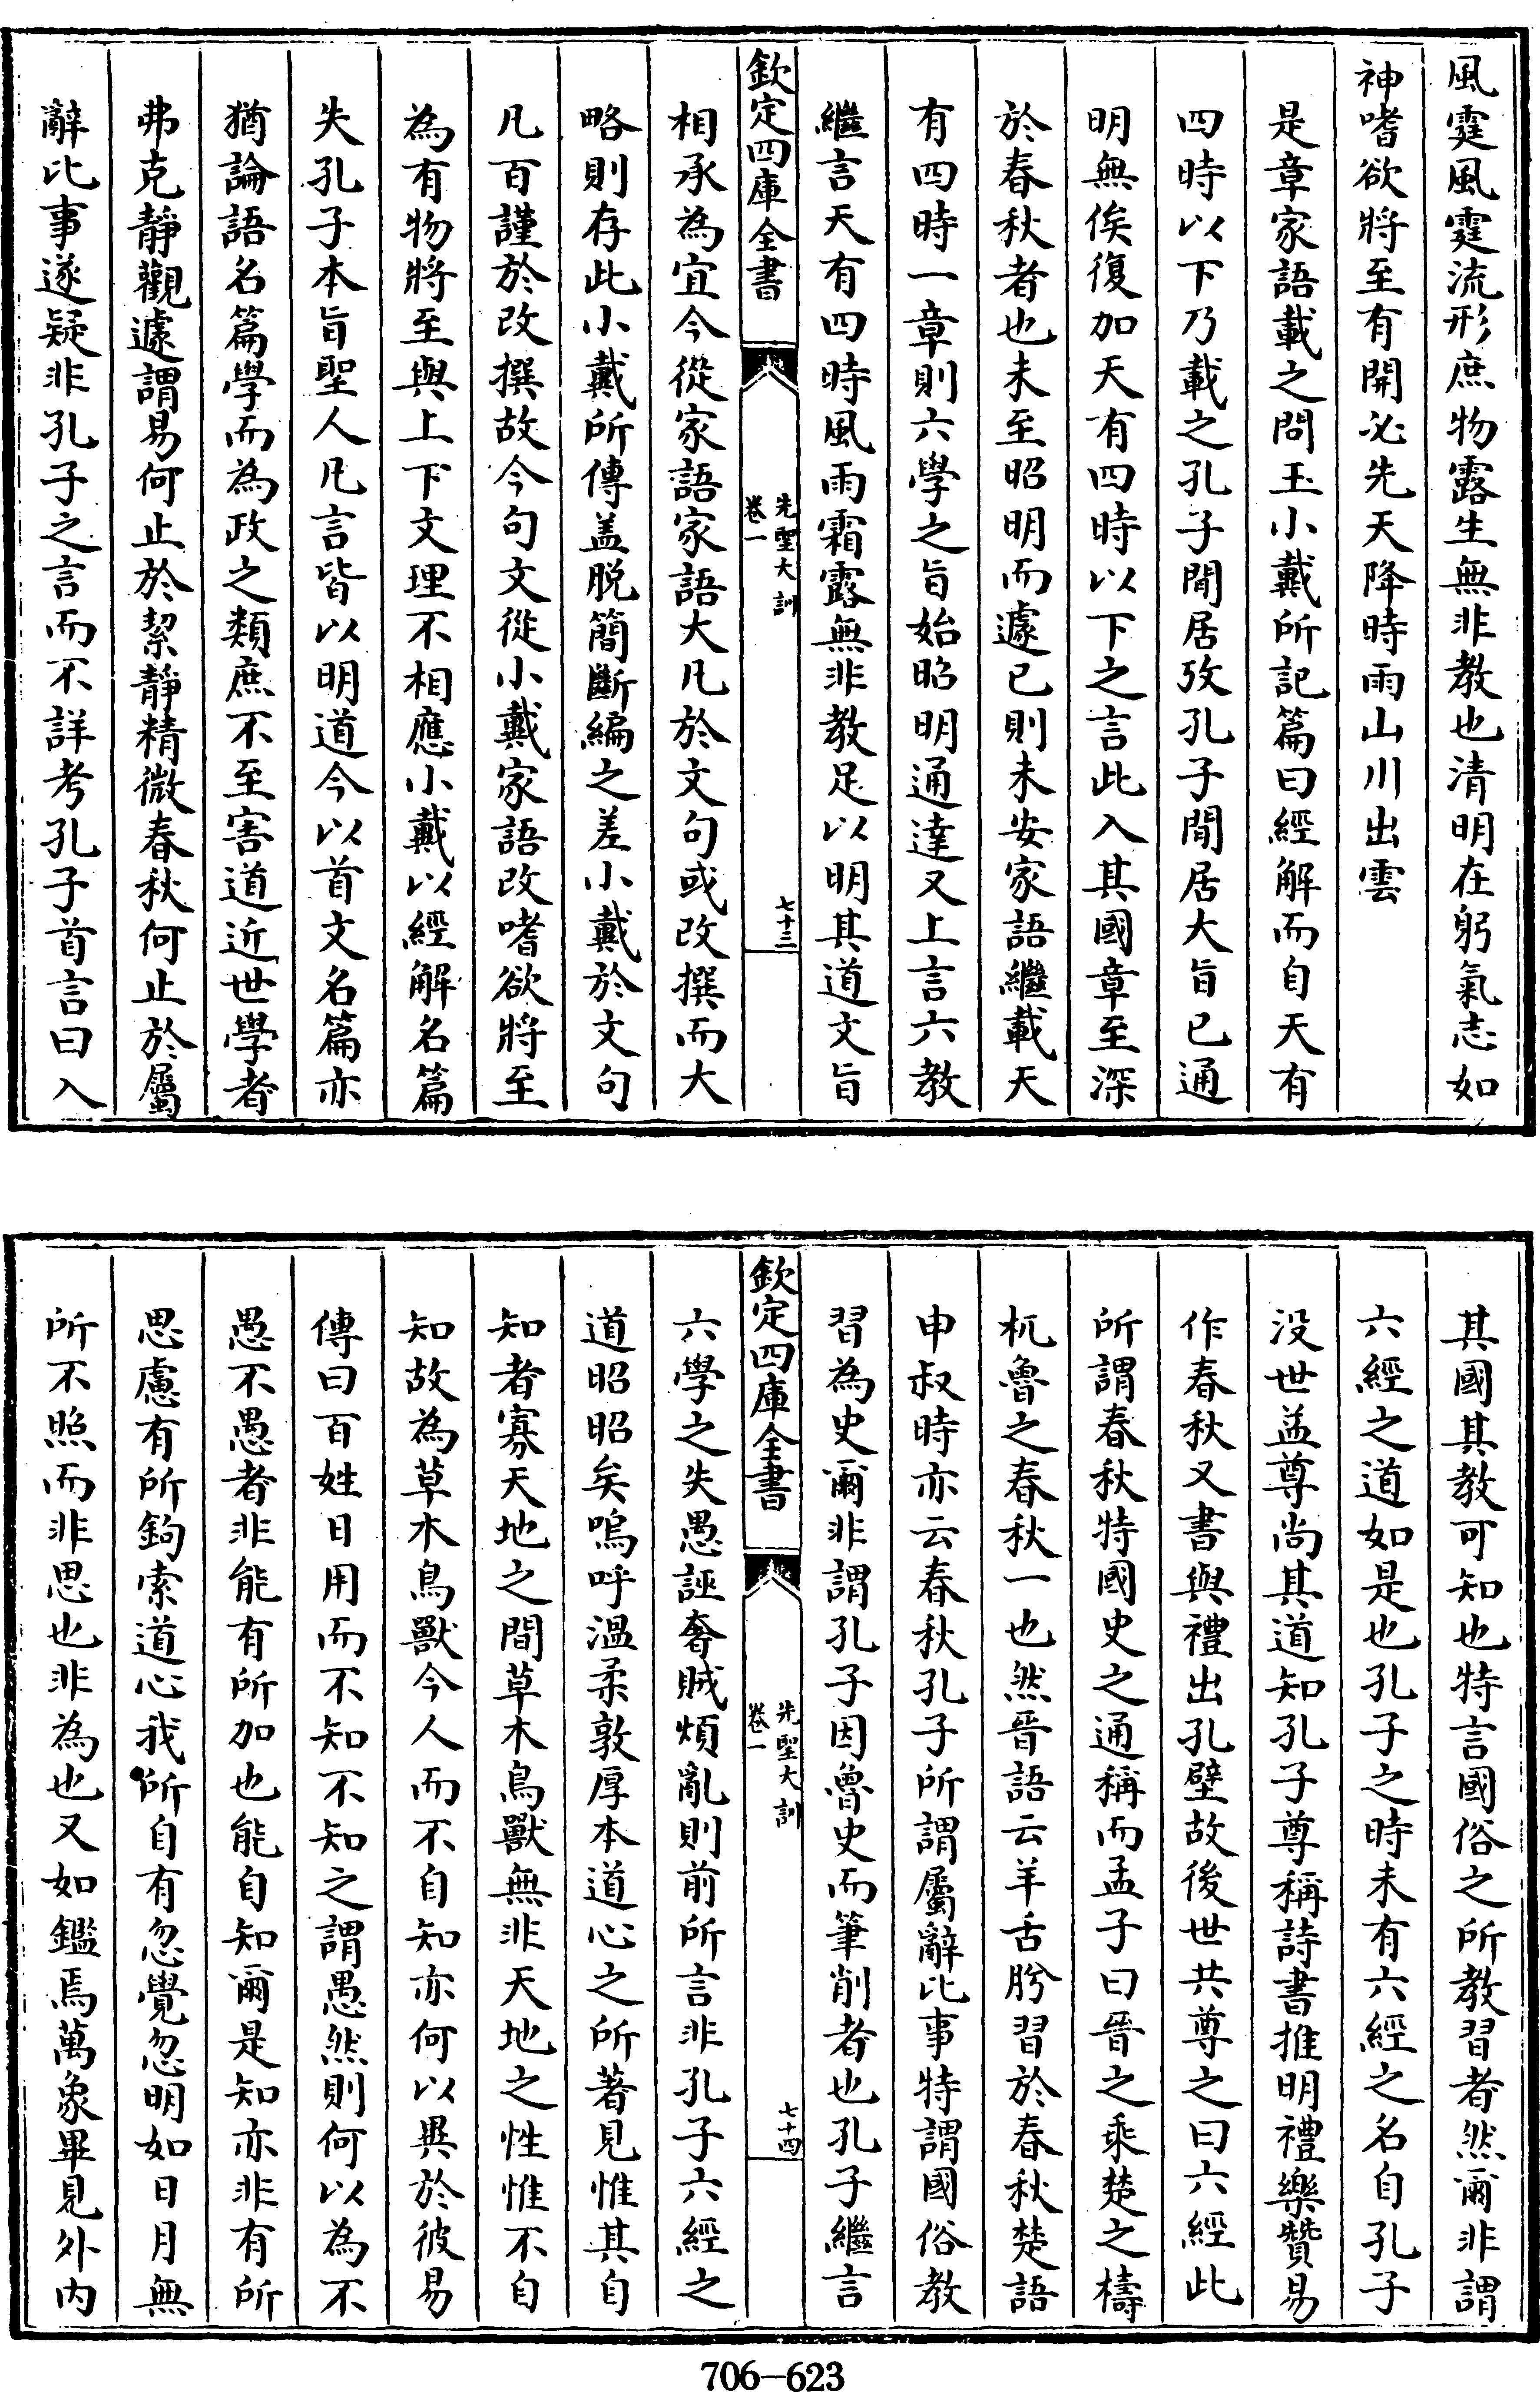 風霆風霆流形庶物露生無非教也清明在躬氣志如
神嗜欲將至有開必先天降時雨山川出雲
是章家語載之問玉小戴所記篇曰經解而自天有
四時以下乃載之孔子閒居攷孔子閒居大旨已通
明無俟復加天有四時以下之言此入其國章至深
於春秋者也未至昭明而遽已則未安家語繼載天
有四時一章則六學之旨始昭明通達又上言六教
繼言天有四時風雨霜露無非教足以明其道文旨
欽定四庫全書
先聖大訓
卷一
七十三
相承為宜今從家語家語大凡於文句或改撰而大
略則存此小戴所傳盖脱簡斷編之差小戴於文句
凡百謹於改撰故今句文從小戴家語改嗜欲將至
為有物將至與上下文理不相應小戴以經解名篇
失孔子本旨聖人凡言皆以明道今以首文名篇亦
猶論語名篇學而為政之類庶不至害道近世學者
弗克靜觀遽謂易何止於絜靜精微春秋何止於屬
辭比事遂疑非孔子之言而不詳考孔子首言曰入
其國其教可知也特言國俗之所教習者然爾非謂
六經之道如是也孔子之時未有六經之名自孔子
没世益尊尚其道知孔子尊稱詩書推明禮樂贊易
作春秋又書與禮出孔壁故後世共尊之曰六經此
所謂春秋特國史之通稱而孟子曰晉之乘楚之檮
杌魯之春秋一也然晉語云羊舌肸習於春秋楚語
申叔時亦云春秋孔子所謂屬辭比事特謂國俗教
習為史爾非謂孔子因魯史而筆削者也孔子繼言
欽定四庫全書
先聖大訓
卷一
七十四
六學之失愚誣奢賊煩亂則前所言非孔子六經之
道昭昭矣嗚呼温柔敦厚本道心之所著見惟其自
知者寡天地之間草木鳥獸無非天地之性惟不自
知故為草木鳥獸今人而不自知亦何以異於彼易
傳曰百姓日用而不知不知之謂愚然則何以為不
愚不愚者非能有所加也能自知爾是知亦非有所
思慮有所鉤索道心我所自有忽覺忽明如日月無
所不照而非思也非為也又如鑑焉萬象畢見外内
706-623